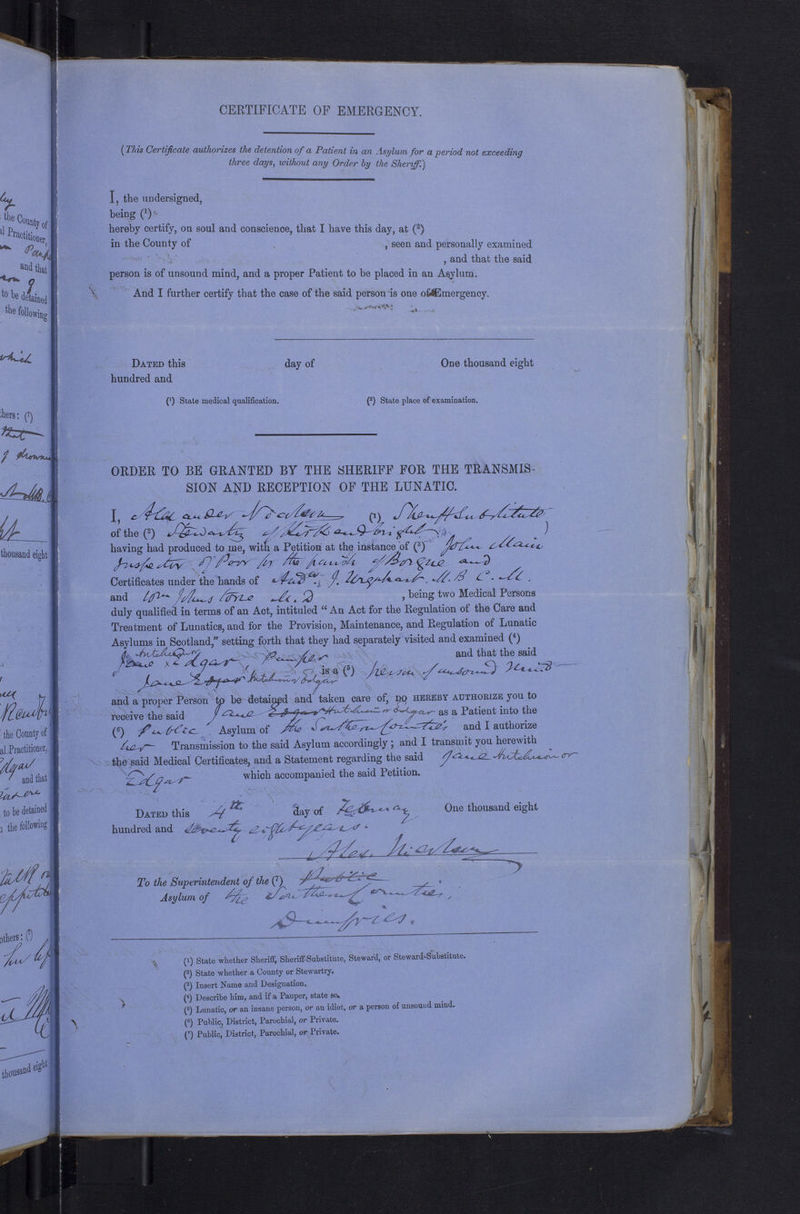 CERTIFICATE OF EMERGENCY.
(This Certificate authorizes the detention of a Patient in an Asylum for a period not exceeding
three days, without any Order by the Sheriff.)
I, the undersigned,
being (¹)
hereby certify, on soul and conscience, that I have this day, at (²)
in the County of , seen and personally examined
, and that the said
person is of unsound mind, and a proper Patient to be placed in an Asylum.
And I further certify that the case of the said person is one of Emergency.
DATED this day of One thousand eight
hundred and
(¹) State medical qualification. (²) State place of examination.
ORDER TO BE GRANTED BY THE SHERIFF FOR THE TRANSMIS-
SION AND RECEPTION OF THE LUNATIC.
I, Alexander Nicolson (¹) Sheriff Substitute
of the (²) Stewartry of Kirkcudbright
having had produced to me, with a Petition at the instance of (³) John Main
Inspector of Poor for the parish of Borgue and
Certificates under the hands of Andw J. Urquhart M.B C.M.
and Wm Johnstone M.D , being two Medical Persons
duly qualified in terms of an Act, intituled “An Act for the Regulation of the Care and
Treatment of Lunatics, and for the Provision, Maintenance, and Regulation of Lunatic
Asylums in Scotland,” setting forth that they had separately visited and examined (⁴)
Jane Hutchison or Edgar, Pauper and that the said
Jane Edgar Hutchison or Edgar is a (⁵) person of unsound mind
and a proper Person to be detained and taken care of, DO HEREBY AUTHORIZE you to
receive the said Jane Edgar Hutchison or Edgar as a Patient into the
(⁶) Public Asylum of the Southern Counties and I authorize
her Transmission to the said Asylum accordingly; and I transmit you herewith
the said Medical Certificates, and a Statement regarding the said Jane Hutchison or
Edgar which accompanied the said Petition.
DATED this 4th day of February One thousand eight
hundred and seventy eight years.
Alex. Nicolson
To the Superintendent of the (⁷) Public
Asylum of the Southern Counties,
Dumfries.
(¹) State whether Sheriff, Sheriff-Substitute, Steward, or Steward-Substitute.
(²) State whether a County or Stewartry.
(³) Insert Name and Designation.
(⁴) Describe him, and if a Pauper, state so.
(⁵) Lunatic, or an insane person, or an idiot, or a person of unsound mind.
(⁶) Public, District, Parochial, or Private.
(⁷) Public, District, Parochial, or Private.
the County of
Practitioner,
and that
to be detained
the following
hers: (¹)
thousand eight
the County of
al Practitioner,
and that
to be detained
the following
others: (¹)
thousand eight